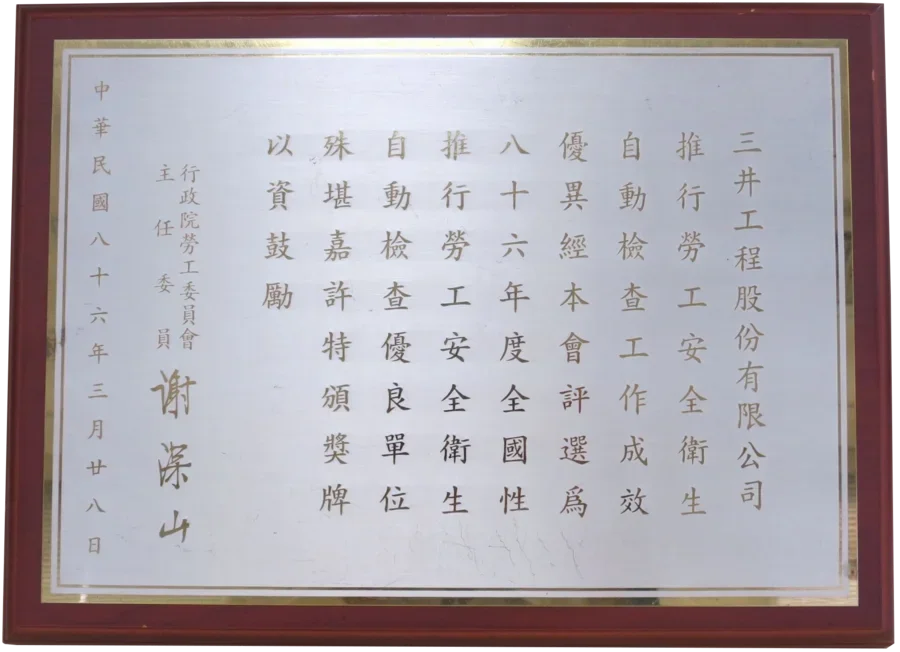 三井工程股份有限公司
推行勞工安全衛生
自動檢查工作成效
優異經本會評選為
八十六年度全國性
推行勞工安全衛生
自動檢查優良單位
殊堪嘉許特頒獎牌
以資鼓勵
行政院勞工委員會
主任委員 謝深山
中華民國八十六年三月廿八日